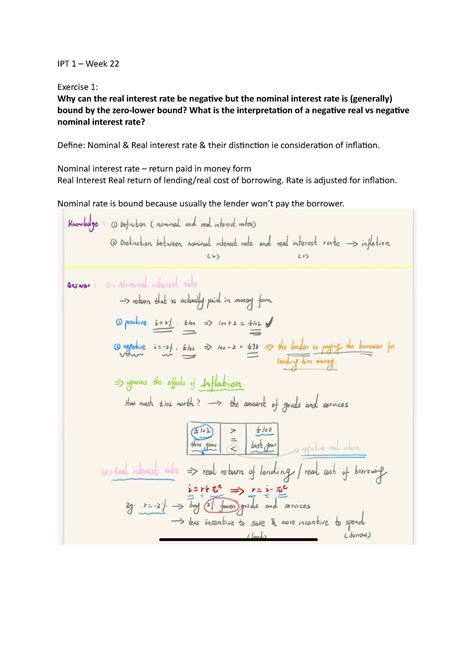 IPT 1 – Week 22
Exercise 1:
Why can the real interest rate be negative but the nominal interest rate is (generally)
bound by the zero-lower bound? What is the interpretation of a negative real vs negative
nominal interest rate?
Define: Nominal & Real interest rate & their distinction ie consideration of inflation.
Nominal interest rate – return paid in money form
Real Interest Real return of lending/real cost of borrowing. Rate is adjusted for inflation.
Nominal rate is bound because usually the lender won’t pay the borrower.
Knowledge : ① Definition ( nominal and real interest rates)
② Distinction between nominal interest rate and real interest rate → inflation
(i) (r)
Answer : (1) Nominal interest rate
→ return that is actually paid in money form
① positive i=2% £100 ⇒ 100+2 = £102 ✓
② negative i=-2% £100 ⇒ 100-2 = £98 ⇒ the lender is paying the borrower for
lending him money.
⇒ ignores the effects of Inflation
How much £102 worth? → the amount of goods and services
£102 > £100
=
this year < last year → negative real return
(2) Real interest rate ⇒ real return of lending / real cost of borrowing
i = r + πᵉ ⇒ r = i - πᵉ
eg: r = -2% → buy 2% fewer goods and services
→ less incentive to save & more incentive to spend
(lend) (borrow)